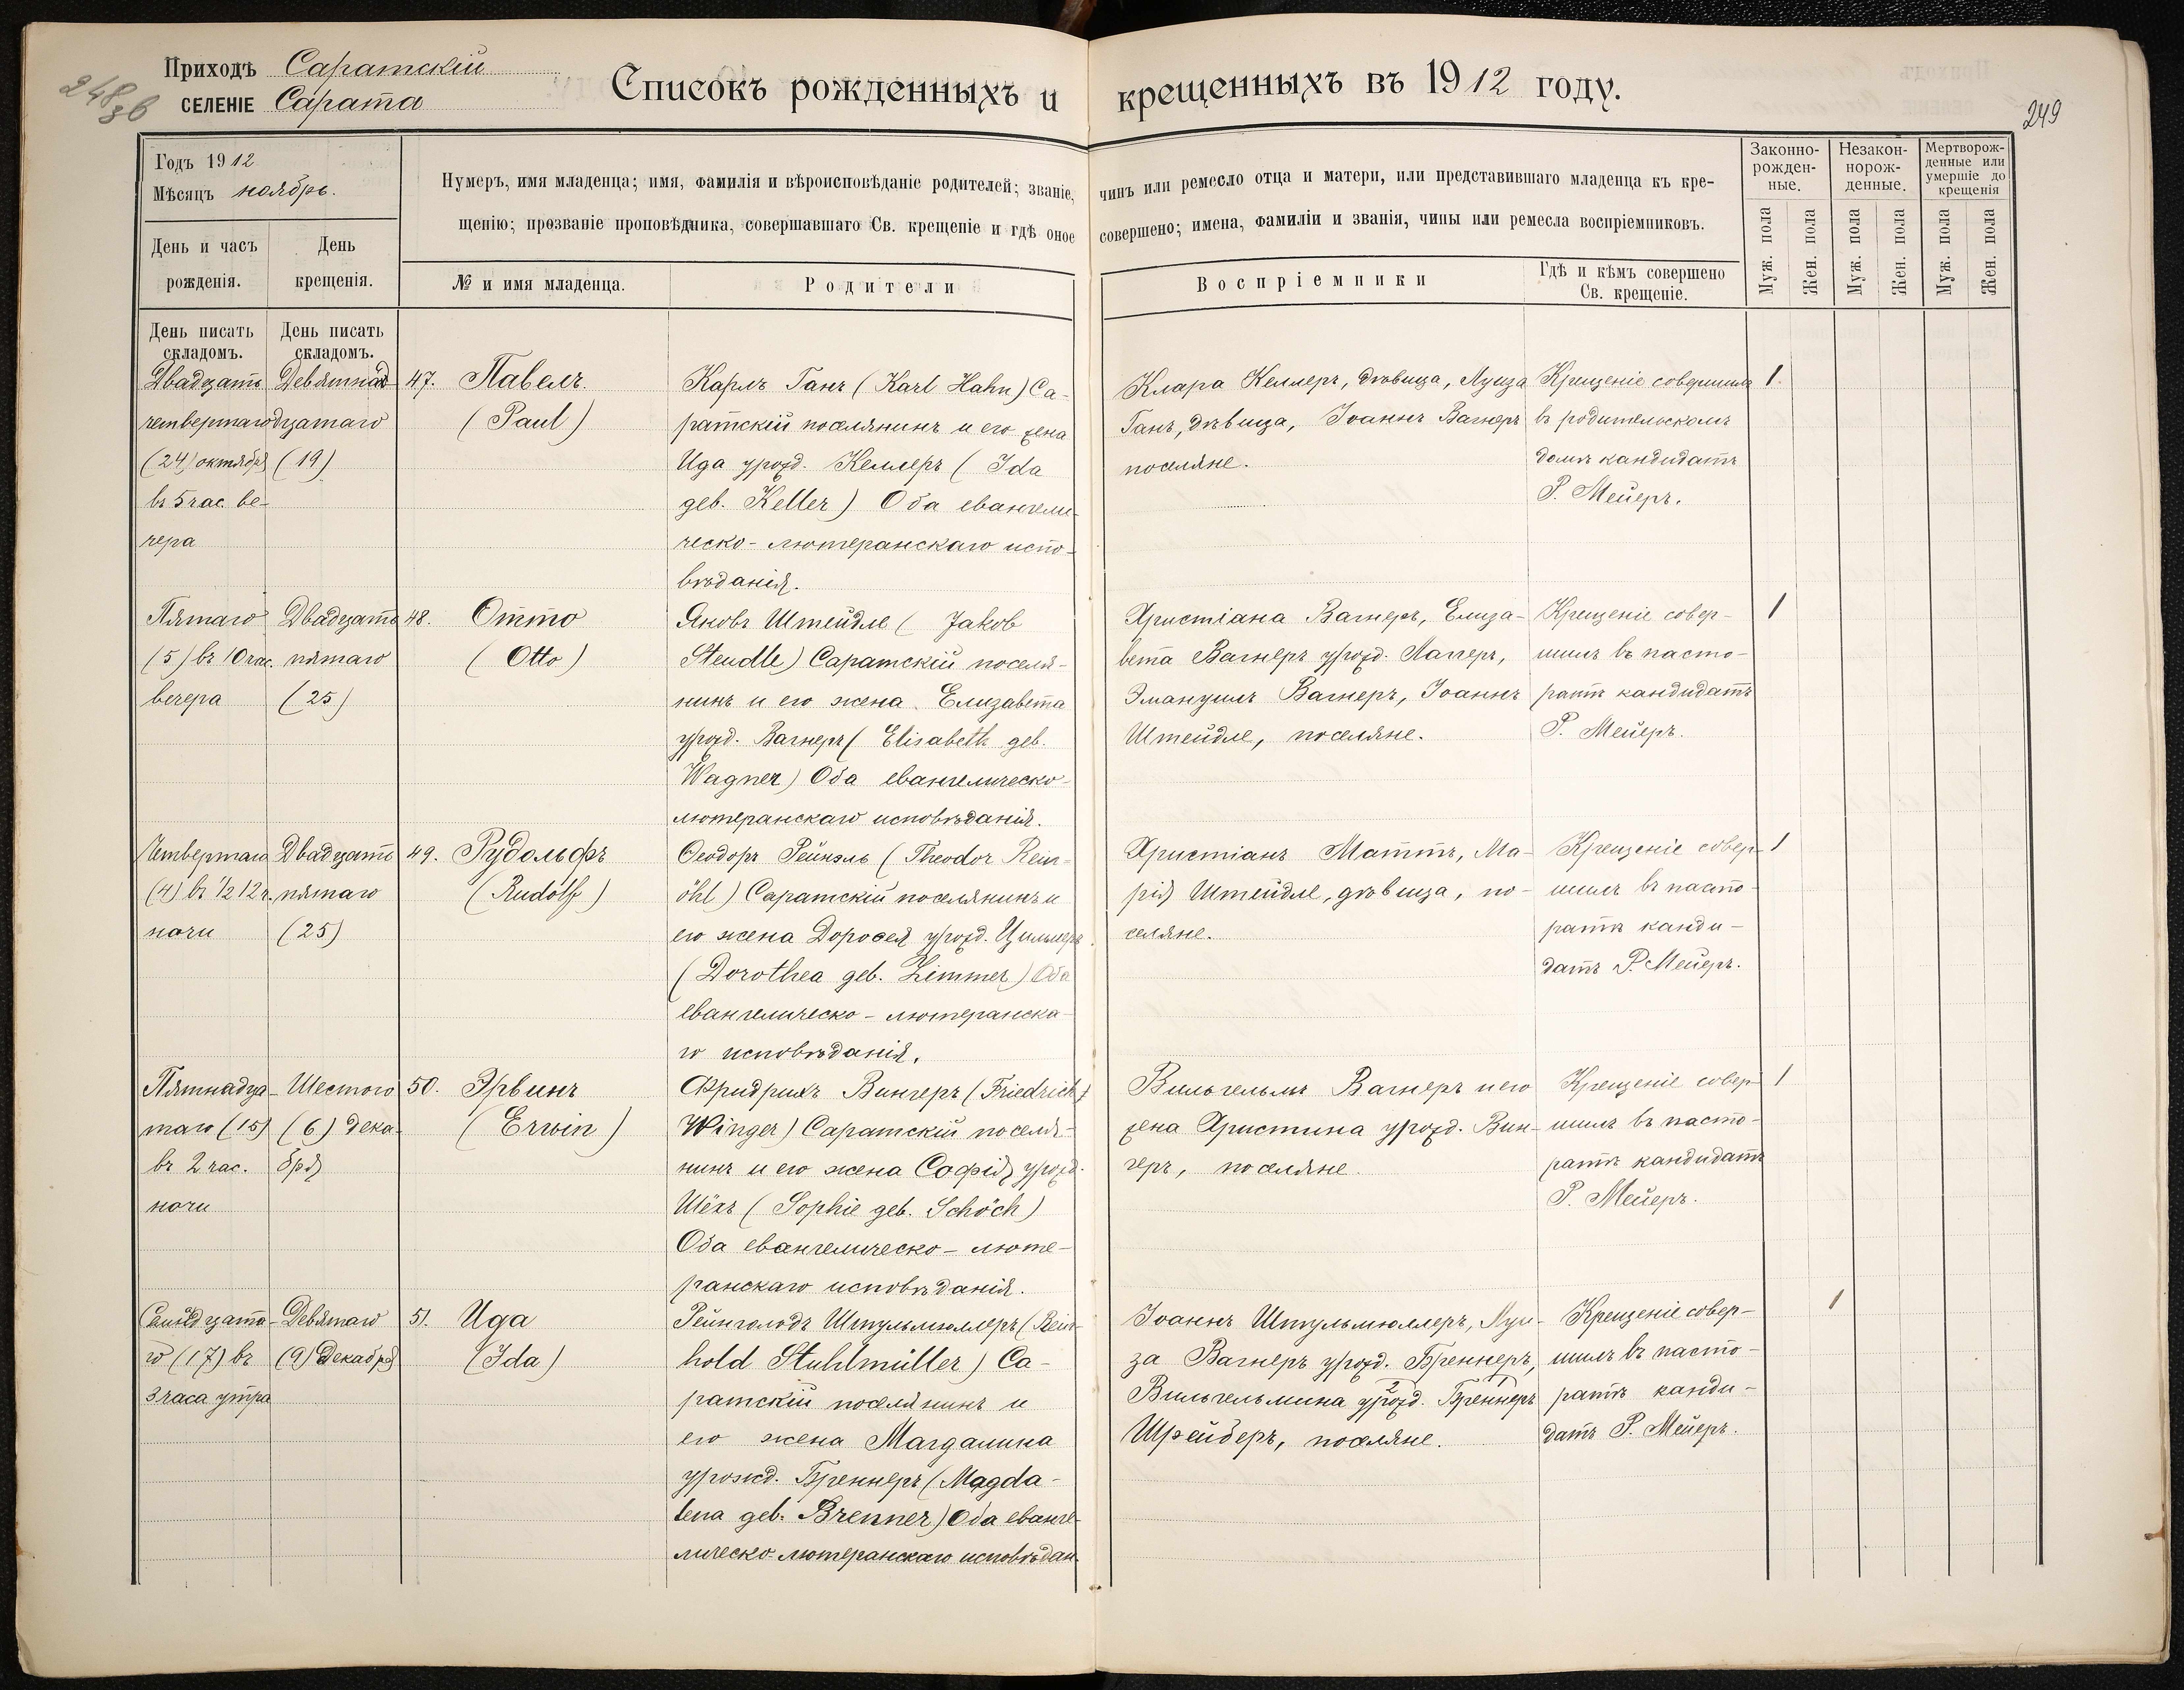 Приходъ Саратскій
248
зв
селеніе Сарата
Списокъ рожденныхъ и крещенныхъ въ 1912 году.
249
Годъ 1912
Мѣсяцъ ноябрь.
День и часъ рожденія.
День крещенія.
Нумеръ, имя младенца; имя, фамилія и вѣроисповѣданіе родителей; званіе, чинъ или ремесло отца и матери, или представившаго младенца къ кре-
щенію; прозваніе проповѣдника, совершавшаго Св. крещеніе и гдѣ оное совершено; имена, фамиліи и званія, чины или ремесла воспріемниковъ.
№ и имя младенца.
Родители
Воспріемники
Гдѣ и кѣмъ совершено
Св. крещеніе.
Законно-
рожден-
ные.
Незакон-
норож-
денные.
Мертворож-
денные или
умершіе до
крещенія
Муж. пола
Жен. пола
Муж. пола
Жен. пола
Муж. пола
Жен. пола
День писать
складомъ.
День писать
складомъ.
Двадцать
четвертаго
(24) октября
въ 5 час. ве-
чера
Девятнад
цатаго
(19)
47. Павелъ.
(Paul)
Карлъ Ганъ (Karl Hahn) Са-
ратскій поселянинъ и его жена
Ида урожд. Келлеръ (Ida
geb. Keller) Оба евангели-
ческо-лютеранскаго испо-
вѣданія.
Клара Келлеръ, дѣвица, Луиза
Ганъ, дѣвица, Іоаннъ Вагнеръ
поселяне.
Крещеніе совершилъ
въ родительскомъ
домѣ кандидатъ
Р. Мейеръ.
1.
Пятаго
(5) въ 10 час.
вечера
Двадцать
пятаго
(25)
48. Отто
(Otto)
Яковъ Штейдле (Jakob
Steudle) Саратскій поселя-
нинъ и его жена Елизавета
урожд. Вагнеръ (Elisabeth geb.
Wagner) Оба евангелическо-
лютеранскаго исповѣданія.
Христіана Вагнеръ, Елиза-
вета Вагнеръ урожд.
Эмануилъ Вагнеръ, Іоаннъ
Штейдле, поселяне.
Крещеніе совер-
шилъ въ пасто-
ратѣ кандидатъ
Р. Мейеръ.
1
Четвертаго
(4) въ 1/2 12 ч.
ночи
Двадцать
пятаго
(25)
49. Рудольфъ
(Rudolf)
Ѳеодоръ Рейнэль (Theodor Rein-
öhl) Саратскій поселянинъ и
его жена Доровея урожд. Циммеръ
(Dorothea geb. Zimmer) Оба
евангелическо-лютеранска-
го исповѣданія.
Христіанъ Маттъ, Ма-
рія Штейдле, дѣвица, по-
селяне.
Крещеніе совер-
шилъ въ пасто-
ратѣ канди-
датъ Р. Мейеръ.
1
Пятнадца-
таго (15)
въ 2 час.
ночи
Шестого
(6) дека-
бря
50. Эрвинъ
(Erwin)
Фридрихъ Вингеръ (Friedrich
Winger) Саратскій поселя-
нинъ и его жена Софія урожд.
Шёхъ (Sophie geb. Schöch)
Оба евангелическо-люте-
ранскаго исповѣданія.
Вильгельмъ Вагнеръ и его
жена Христина урожд. Вин-
геръ, поселяне.
Крещеніе совер-
шилъ въ пасто-
ратѣ кандидатъ
Р. Мейеръ.
1
го (17) въ
3 часа утра
Девятаго
(9) Декабря
51. Ида
(Ida)
Рейнголодъ Штульмюллеръ (Rein-
hold Stuhlmüller) Са-
ратскій поселянинъ и
его жена Магдалина
урожд. Бреннеръ (Magda-
lena geb. Brenner) Оба еванге-
лическо-лютеранскаго исповѣдан.
Іоаннъ Штульмюллеръ, Луи-
за Вагнеръ урожд. Бреннеръ,
Вильгельмина урожд. Бреннеръ
Шрейберъ, поселяне.
Крещеніе совер-
шилъ въ пасто-
ратѣ канди-
датъ Р. Мейеръ.
1